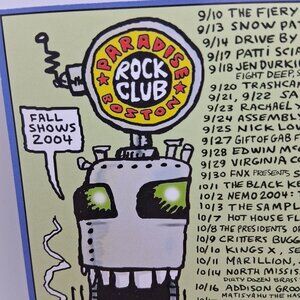 PARADISE
ROCK
CLUB
BOSTON
FALL
SHOWS
2004
9/10 THE FIERY
9/13 SNOW PA
9/14 DRIVE BY
9/17 PATTI SCI
9/18 JEN DURKIN
FIGHT DEEP,
9/20 TRASHCAN
9/21, 9/22 SA
9/23 RACHAEL
9/24 ASSEMBLY
9/25 NICK LO
9/27 GIFT OF GAB
9/28 EDWIN MC
9/29 VIRGINIA C
9/30 FNX PRESENTS S
10/1 THE BLACK K
10/2 NEMO 2004: T
10/3 THE SAMPL
10/7 HOT HOUSE FL
10/8 THE PRESIDENTS OF
10/9 CRITTERS BUGG
10/10 KING'S X, SE
10/11 MARILLION,
10/14 NORTH MISSIS
DIRTY DOZEN BRASS
10/16 ADDISON GROO
MATISYAHU THE HAS